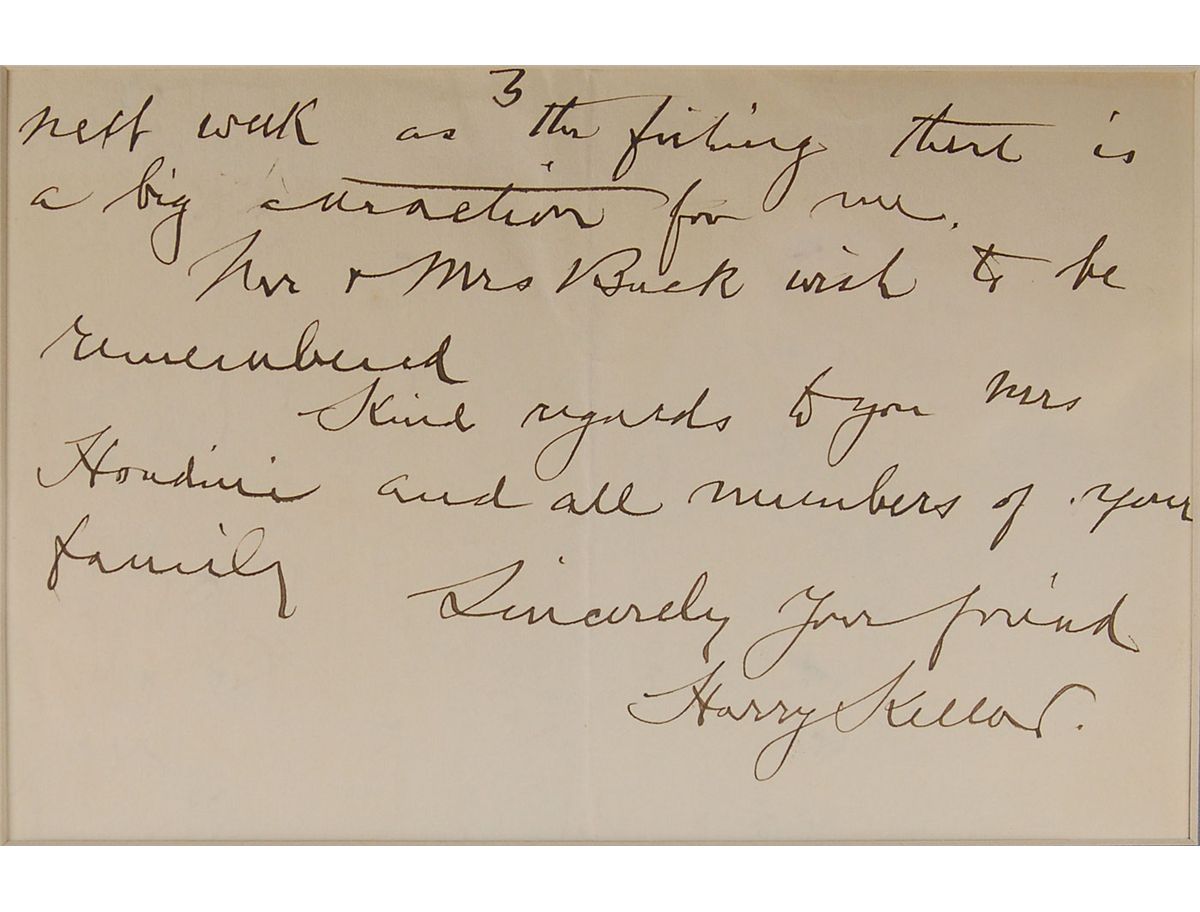 3
next week as the fishing there is
a big attraction for me.
Mr & Mrs Buck wish to be
remembered
Kind regards to you Mrs
Houdini and all members of your
family
Sincerely Your friend
Harry Kellar.